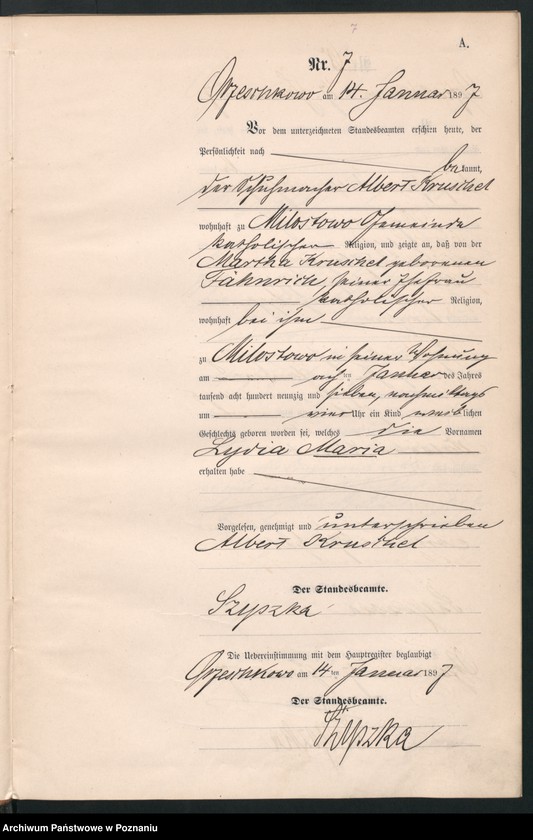 7
A.
Nr. 7
Orzeschkowo am 14. Januar 1897
Vor dem unterzeichneten Standesbeamten erschien heute, der
Persönlichkeit nach
bekannt,
der Schuhmacher Albert Kruschel
wohnhaft zu Milostowo Gemeinde
katholischer Religion, und zeigte an, daß von der
Martha Kruschel geborenen
Fähnrich, seiner Ehefrau
katholischer Religion,
wohnhaft bei ihm
zu Milostowo in seiner Wohnung
am acht ten Januar des Jahres
tausend acht hundert neunzig und sieben, nachmittags
um vier Uhr ein Kind weiblichen
Geschlechts geboren worden sei, welches die Vornamen
Lydia Maria
erhalten habe
Vorgelesen, genehmigt und unterschrieben
Albert Kruschel
Der Standesbeamte.
Szypzka
Die Uebereinstimmung mit dem Hauptregister beglaubigt
Orzeschkowo am 14 ten Januar 1897
Der Standesbeamte.
Szypzka
Archiwum Państwowe w Poznaniu